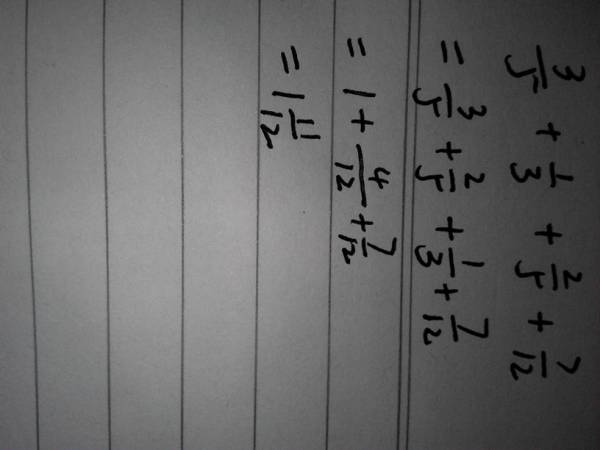 3/5 + 1/3 + 2/5 + 7/12
= 3/5 + 2/5 + 1/3 + 7/12
= 1 + 4/12 + 7/12
= 1 11/12